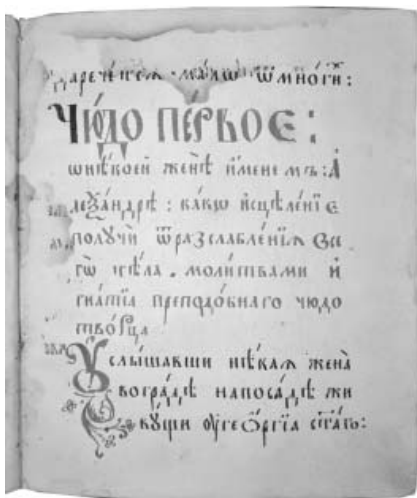 да речен̾ная малаѡ ѿ мно́гихъ:
Чю́до пе́рвое:
ѡ нѣ́коеи женѣ̀ и҆́менемъ: А҆
леѯа́ндрѣ: ка́кѡ и҆сцѣле́нїе
получѝ ѿ разслабле́нїѧ все
гѡ̀ тѣ́ла. моли́твами и҆
гна́тїа преподо́бнаго чюдо
тво́рца
Услы́шавши нѣ́каѧ жена̀
во гра́дѣ на поса́дѣ жи
ву́щи оу҆ гео́ргїа ста́гѡ: